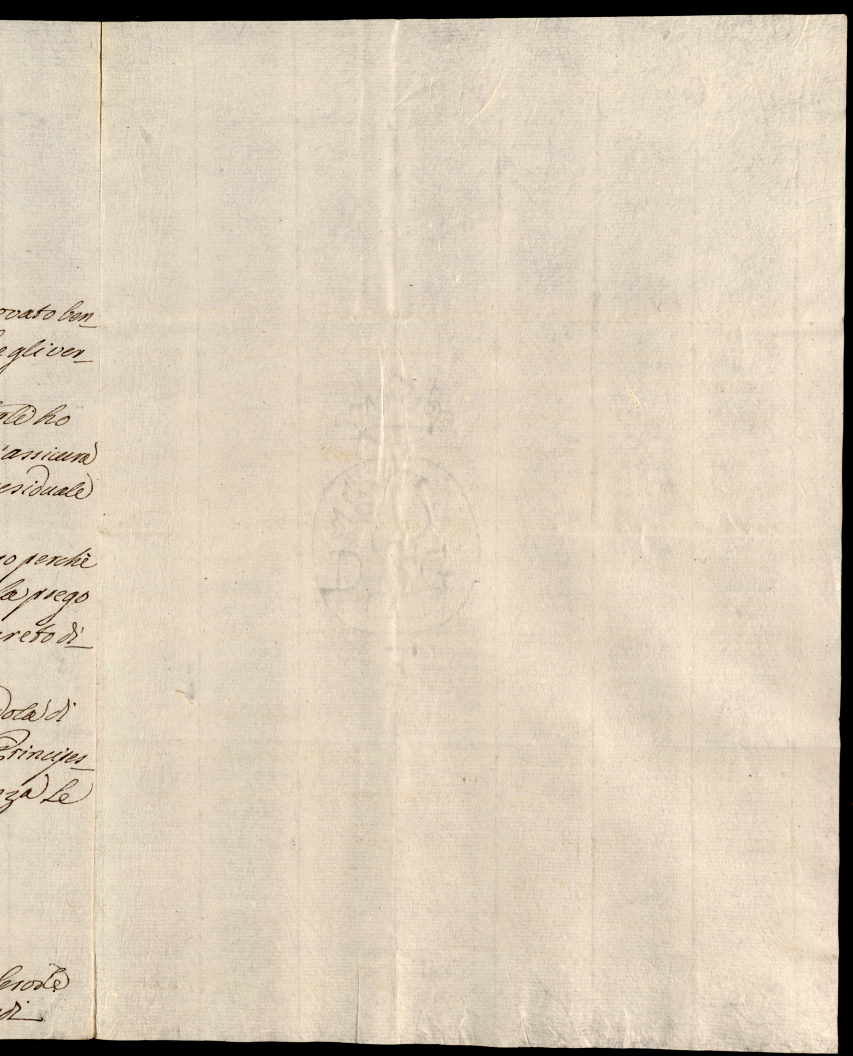 ovato ben_
e gli ver_
ho
assicura
esiduale
o perchè
la prego
creto di_
dola di
Principes_
nza Le
di